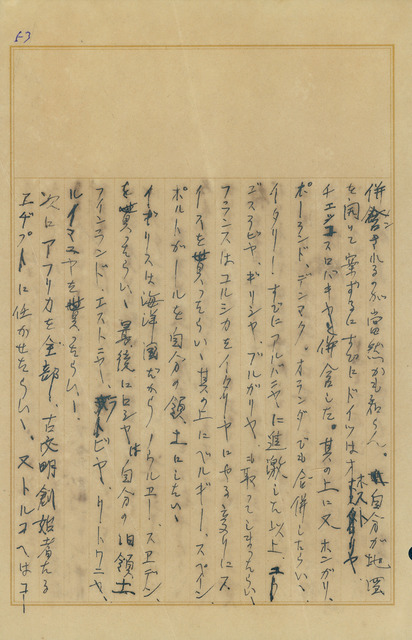 53
併発されるのが当然かも知らん。自分が地図
を開いて案ずるにすでにドイツはオーストリヤ、
チェッコスロバキヤを併合した。其の上に又ホンガリ、
ポーランド、デンマク、オランダでも合併したらいゝ、
イタリー!すでにアルバニヤに進激した以上、ユー
ゴスラビヤ、ギリシヤ、ブルガリヤ、も取ってしまったらいゝ
フランスはコルシカをイタリヤにやる変りにス
イスを貰ったらいゝ其の上にベルギー、スペイン、
ポルトガールを自分の領土にしたらいゝ
イギリスは海洋国だからノウルエー、スエデン、
を貰ったらいゝ最後にロシヤは自分の旧領土
フインランド、エストニヤ、ラトビヤ、リートワニヤ、
ルーマニヤを貰ったらいゝ!
次にアフリカを全部し、古文明創始者たる
エヂプトに任かせたらいゝ、又トルコへはヨー